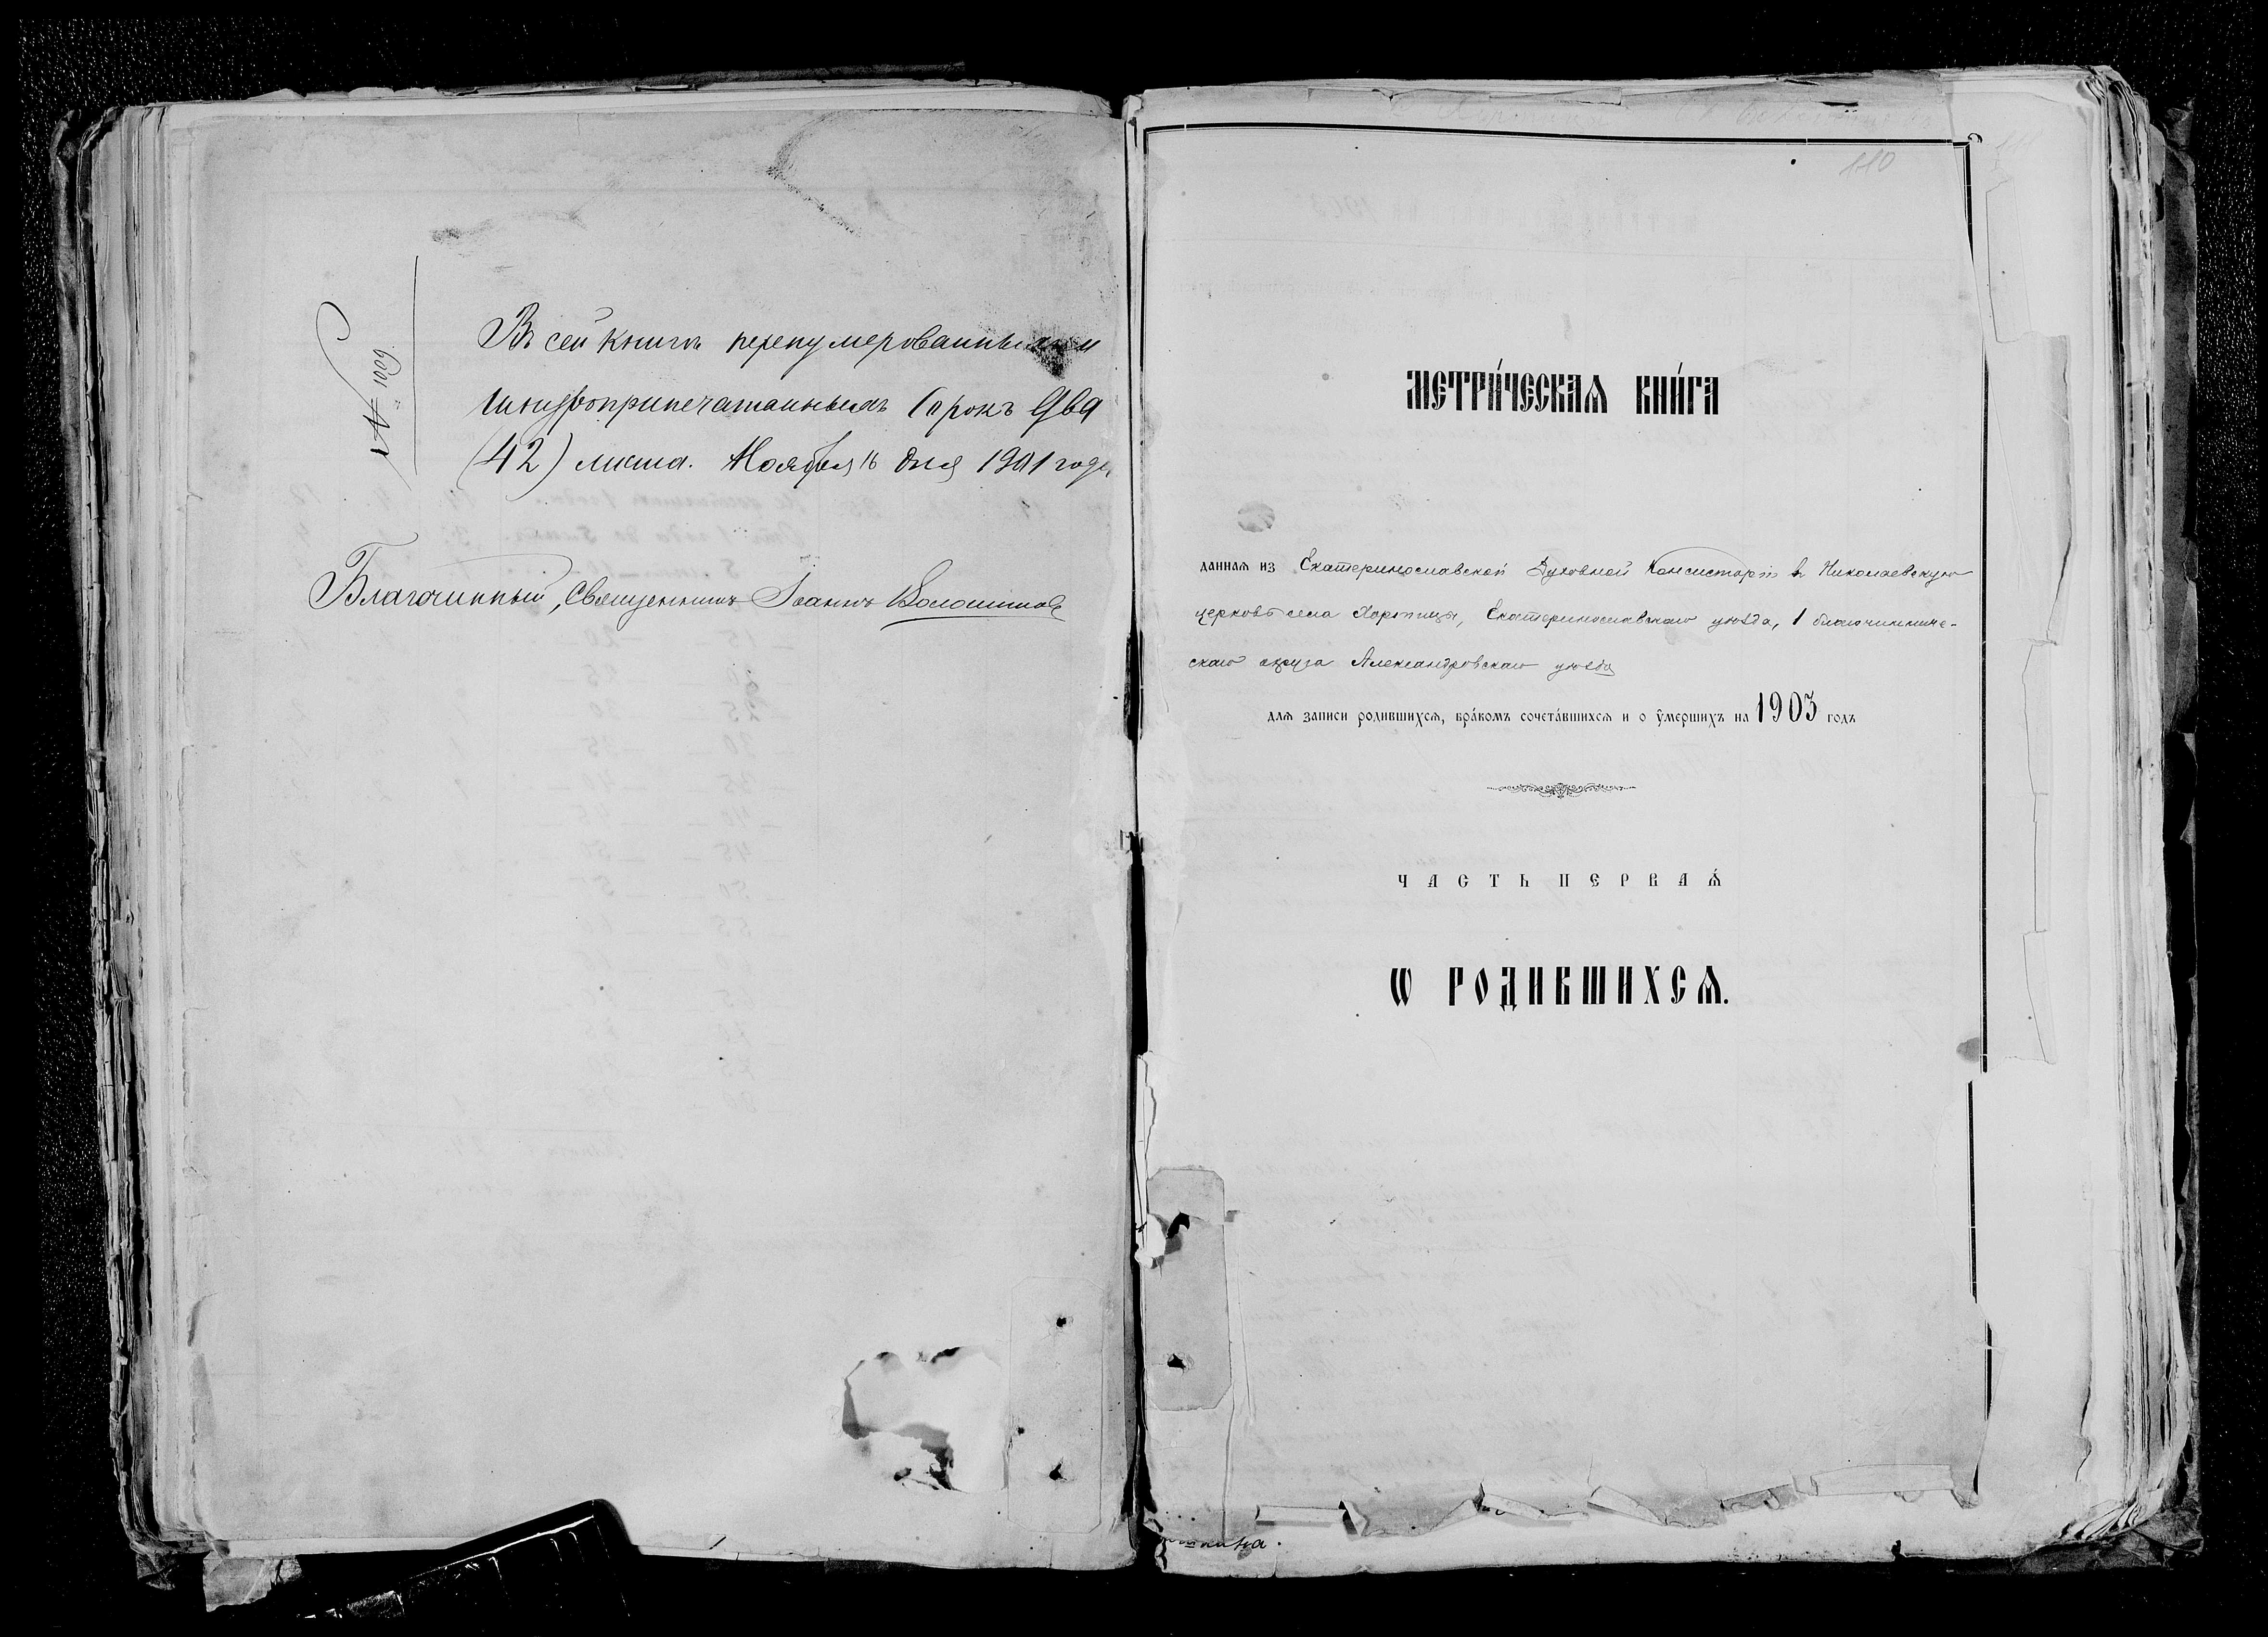 № 1009
Въ сей книгѣ перенумерованныхъ и
шнуроприпечатанныхъ сорокъ два
(42) листа. Ноября 16 дня 1901 года
Благочинный, Священникъ Іоаннъ Волошиновъ
110
МЕТРИ́ЧЕСКАѦ КНИ́ГА
даннаѧ из Екатеринославской Духовной Консисторіи въ Николаевскую
церковь села Хортицы, Екатеринославскаго уѣзда, 1 благочинниче-
скаго округа Александровскаго уѣзда
длѧ записи родившихсѧ, бра́комъ сочета́вшихсѧ и о ᲂу҆мершихъ на 1903 годъ
ЧАСТЬ ПЕРВАѦ́
Ѡ РОДИВШИХСѦ.